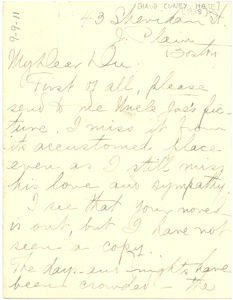 9-9-11
[MAUD CUNEY HARE]
43 Sheridan St.
J. Plain
Boston
My dear Du:
First of all, please
send to me Uncle Joe's pic-
ture. I miss it from
its accustomed place
even as I still miss
his love and sympathy.
I see that your novel
is out, but I have not
seen a copy.
The days and nights have
been crowded - the